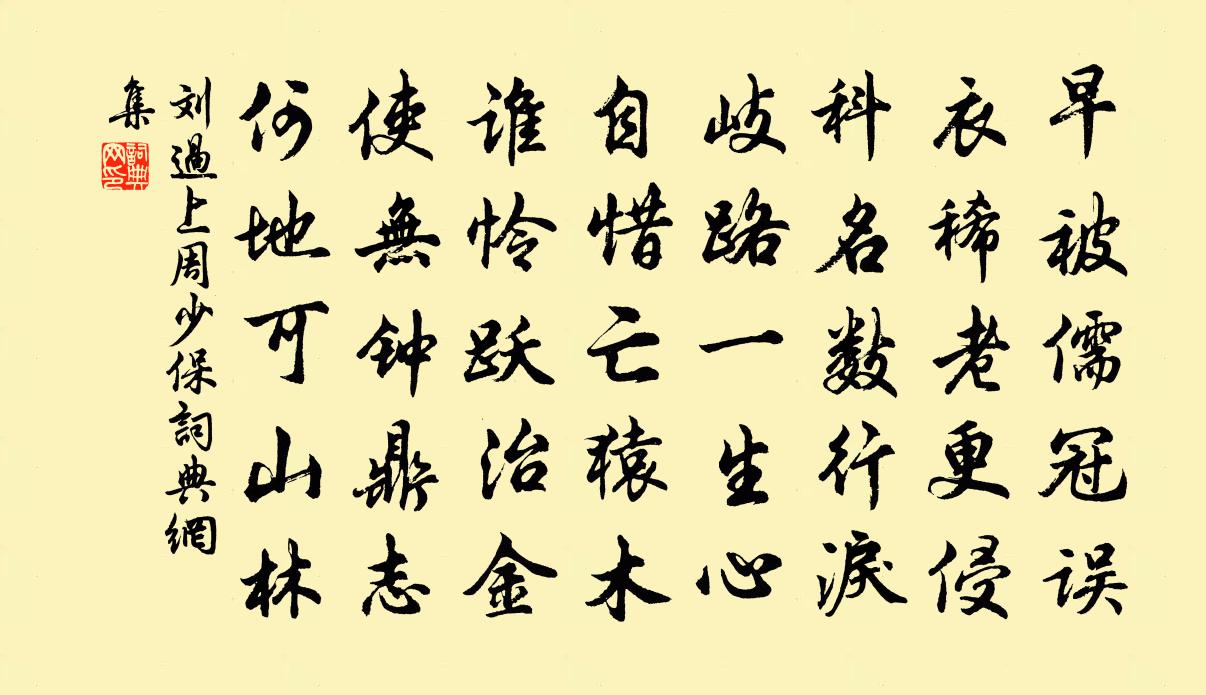 早被儒冠误
衣稀老更侵
科名数行淚
岐路一生心
自惜亡猿木
谁怜跃冶金
使無钟鼎志
何地可山林
刘過上周少保詞典網
集
詞典網印